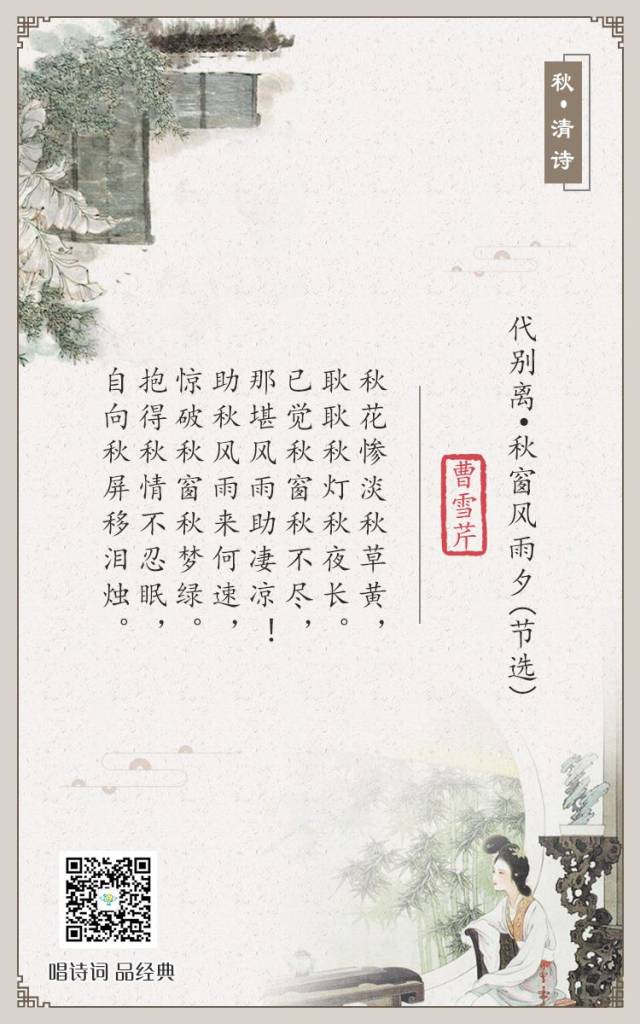 秋·清诗
代别离·秋窗风雨夕(节选)
曹雪芹
秋花惨淡秋草黄，
耿耿秋灯秋夜长。
已觉秋窗秋不尽，
那堪风雨助凄凉！
助秋风雨来何速，
惊破秋窗秋梦绿。
抱得秋情不忍眠，
自向秋屏移泪烛。
唱诗词 品经典